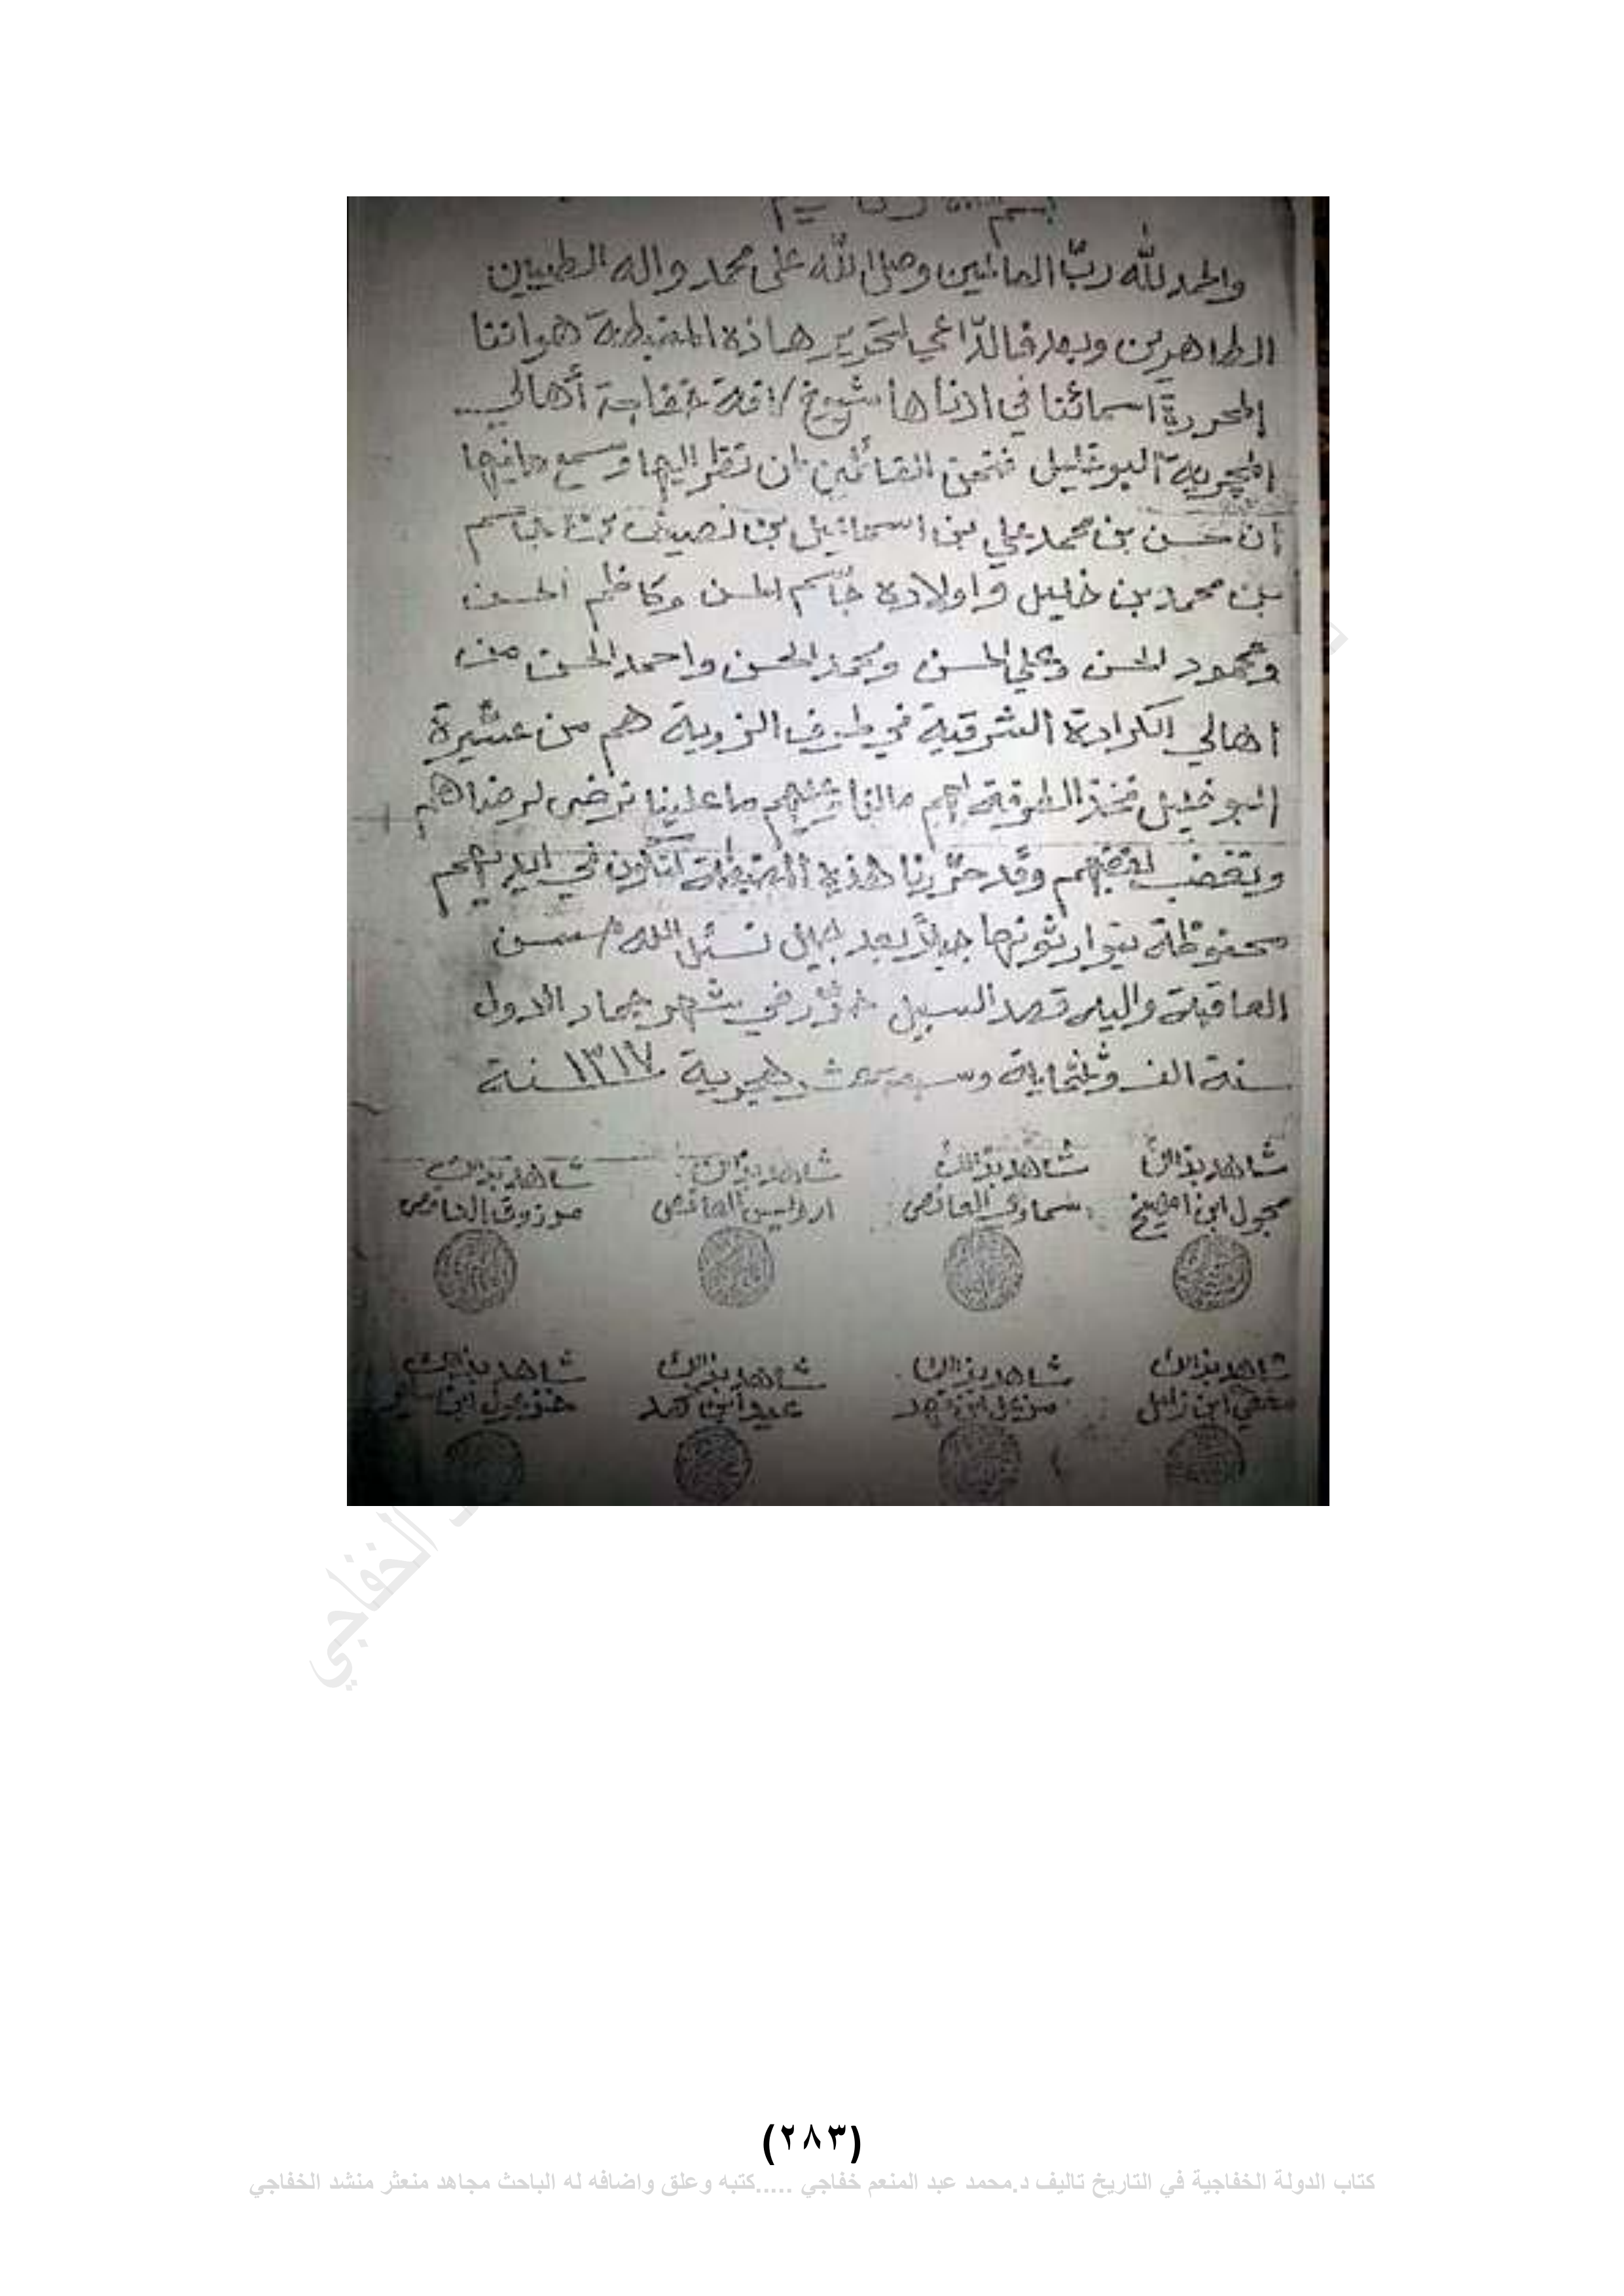 والحمد لله ربّ العالمين وصلى الله على محمد واله الطيبين
الطاهرين وبعد فالدّاعي لتحرير هاذه المضبطة هو اننا
المحررة اسمائنا في ادناها شيوخ كافة خفاجة أهالي...
البو خليل القائلين ان تنظر اليها وتسمع ما فيها
ان حسن بن محمد علي بن اسماعيل بن نصيف بن جاسم
بن محمد بن خليل واولاده جاسم الحسن وكاظم الحسن
ومحمود الحسن وعلي الحسن ومحمد الحسن واحمد الحسن من
اهالي الكرادة الشرقية في طرف الزوية هم من عشيرة
البو خليل فخذ الطوقة لهم ما لنا وعليهم ما علينا نرضى لرضاهم
ونغضب لغضبهم وقد حررنا هذه المضبطة لتكون في ايديهم
محفوظة يتوارثونها جيلاً بعد جيل نسئل الله حسن
العاقبة واليه قصد السبيل حرّر في شهر جماد الاول
سنة الف وثلثماية وسبعة عشر هجرية ١٣١٧ سنة
شاهد بذالك شاهد بذالك شاهد بذالك شاهد بذالك
مجول ابن سماوي مرزوق
شاهد بذالك شاهد بذالك شاهد بذالك شاهد بذالك
ابن زامل مزعل ابن فهد عبد ابن حمد خزعل ابن
الخفاجي
(٢٨٣)
كتاب الدولة الخفاجية في التاريخ تاليف د.محمد عبد المنعم خفاجي .....كتبه وعلق واضافه له الباحث مجاهد منعثر منشد الخفاجي